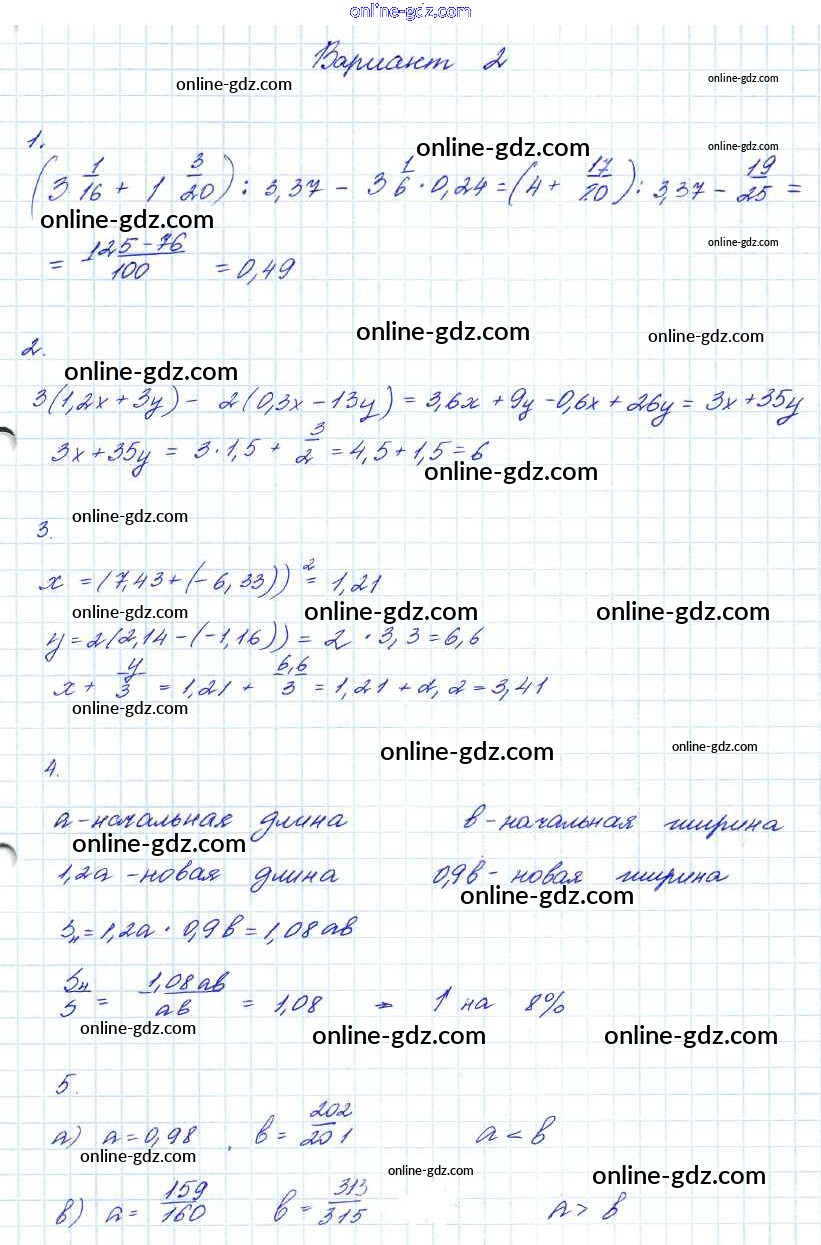 online-gdz.com
Вариант 2
online-gdz.com online-gdz.com
1.
online-gdz.com online-gdz.com
(3 1/16 + 1 3/20) : 3,37 - 3 1/6 · 0,24 = (4 + 17/80) : 3,37 - 19/25 =
online-gdz.com
= 125-76/100 = 0,49
online-gdz.com
online-gdz.com online-gdz.com
2.
online-gdz.com
3(1,2x + 3y) - 2(0,3x - 13y) = 3,6x + 9y - 0,6x + 26y = 3x + 35y
3x + 35y = 3 · 1,5 + 3/2 = 4,5 + 1,5 = 6
online-gdz.com
online-gdz.com
3.
x = (7,43 + (-6,33))² = 1,21
online-gdz.com online-gdz.com online-gdz.com
y = 2(2,14 - (-1,16)) = 2 · 3,3 = 6,6
x + y/3 = 1,21 + 6,6/3 = 1,21 + 2,2 = 3,41
online-gdz.com
online-gdz.com online-gdz.com
4.
a - начальная длина в - начальная ширина
online-gdz.com
1,2a - новая длина 0,9в - новая ширина
online-gdz.com
Sн = 1,2a · 0,9в = 1,08aв
Sн/S = 1,08aв/aв = 1,08 → ↑ на 8%
online-gdz.com online-gdz.com online-gdz.com
5.
а) a = 0,98, в = 202/201 a < в
online-gdz.com
online-gdz.com online-gdz.com
в) a = 159/160 в = 313/315 a > в